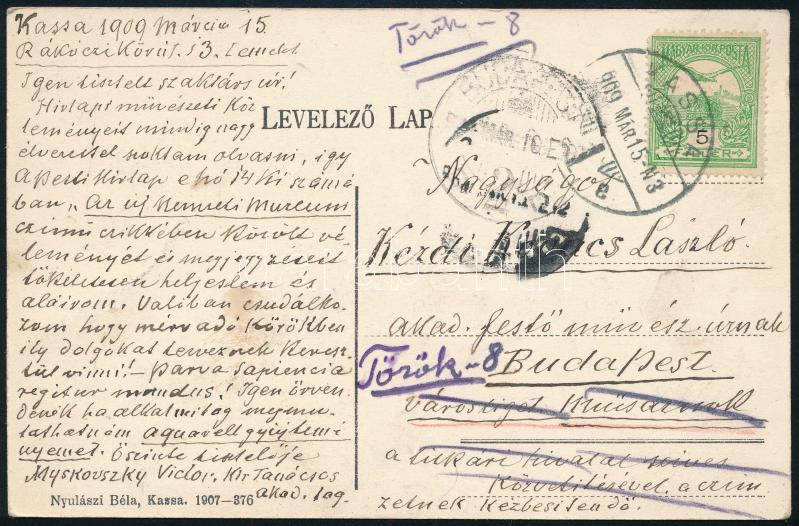 Kassa 1909 Március 15.
Rákóczi Körút 
Igen tisztelt szaktárs úr!
Hirlapi művészeti köz
leményeit mindig nagy
élvezettel szoktam olvasni, így
a Pesti Hirlap e hó 14 ki számá
ban „Az új Nemzeti Muzeum
czimű czikkében közölt vé-
leményét és megjegyzéseit
tökéletesen helyeslem és
aláirom. Valóban csudálko-
zom hogy mérvadó körökben
ily dolgokat terveznek keresz-
tül vinni! – Parva sapiencia
regitur mundus! Igen örven-
denék ha alkalmilag megmu-
tathatnám aquarell gyüjtemé-
nyemet. Őszinte tisztelője
Myskovszky Victor. Kir Tanácsos
akad. tag.
Nyulászi Béla, Kassa. 1907—376
Török – 8
LEVELEZŐ LAP
MAGYAR KIR. POSTA
5
909 MÁR 15 – N3
Nagyságos
Kézdi Kovács László.
akad. festő művész úrnak
Török – 8
Budapest.
Városliget Műcsarnok
a titkári hivatal szives
közvetitésével a czim
zetnek kézbesitendő.